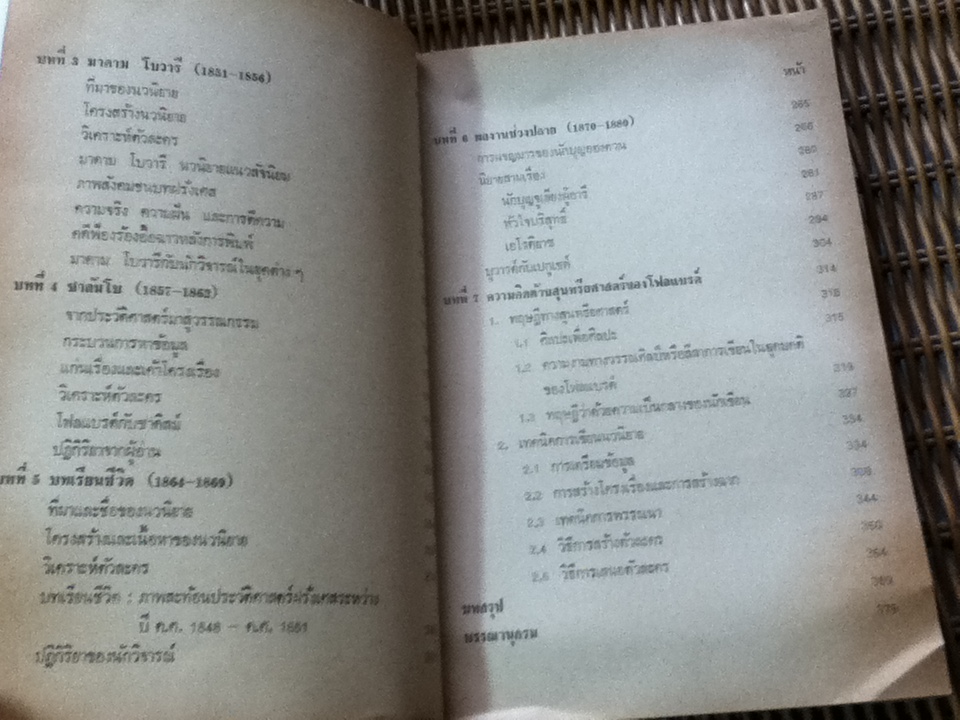 บทที่ 3 มาดาม โบวารี (1851-1856)
ที่มาของนวนิยาย
โครงสร้างนวนิยาย
วิเคราะห์ตัวละคร
มาดาม โบวารี นวนิยายแนวสัจนิยม
ภาพสังคมชนบทฝรั่งเศส
ความจริง ความฝัน และการตีความ
คดีฟ้องร้องอื้อฉาวหลังการพิมพ์
มาดาม โบวารีกับนักวิจารณ์ในยุคต่าง ๆ
บทที่ 4 ซาลัมโบ (1857-1862)
จากประวัติศาสตร์มาสู่วรรณกรรม
กระบวนการหาข้อมูล
แก่นเรื่องและเค้าโครงเรื่อง
วิเคราะห์ตัวละคร
โฟลแบรต์กับซาดิสม์
ปฏิกิริยาจากผู้อ่าน
บทที่ 5 บทเรียนชีวิต (1864-1869)
ที่มาและชื่อของนวนิยาย
โครงสร้างและเนื้อหาของนวนิยาย
วิเคราะห์ตัวละคร
บทเรียนชีวิต : ภาพสะท้อนประวัติศาสตร์ฝรั่งเศสระหว่าง
ปี ค.ศ. 1848 - ค.ศ. 1851
ปฏิกิริยาของนักวิจารณ์
หน้า
บทที่ 6 ผลงานช่วงปลาย (1870-1880) 265
การผจญมารของนักบุญอองตวน 266
นิยายสามเรื่อง 280
นักบุญจูเลียงผู้อารี 281
หัวใจบริสุทธิ์ 287
เอโรดิยาซ 294
บูวารด์กับเปกูเชต์ 304
บทที่ 7 ความคิดด้านสุนทรียศาสตร์ของโฟลแบรต์ 314
1. ทฤษฎีทางสุนทรียศาสตร์
1.1 ศิลปะเพื่อศิลปะ 315
1.2 ความงามทางวรรณศิลป์หรือลีลาการเขียนในอุดมคติ
ของโฟลแบรต์ 319
1.3 ทฤษฎีว่าด้วยความเป็นกลางของนักเขียน 327
2. เทคนิคการเขียนนวนิยาย 334
2.1 การเตรียมข้อมูล 334
2.2 การสร้างโครงเรื่องและการสร้างฉาก
2.3 เทคนิคการพรรณนา 344
2.4 วิธีการสร้างตัวละคร
2.5 วิธีการเสนอตัวละคร 364
บทสรุป 369
บรรณานุกรม 375